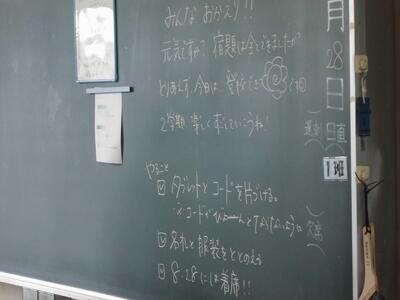 みんなおかえり!!
元気ですか? 宿題は全てできましたか
とりあえず、今日は、登校できて
2学期 楽しくすごしていこうね!
やること
☑ タブレットとコードを片づける。
※コードがびよーんとならないように
☑ 名札と服装をととのえる
☑ 8:28には着席!!
月
28
日
日直
遅刻
1班
欠席